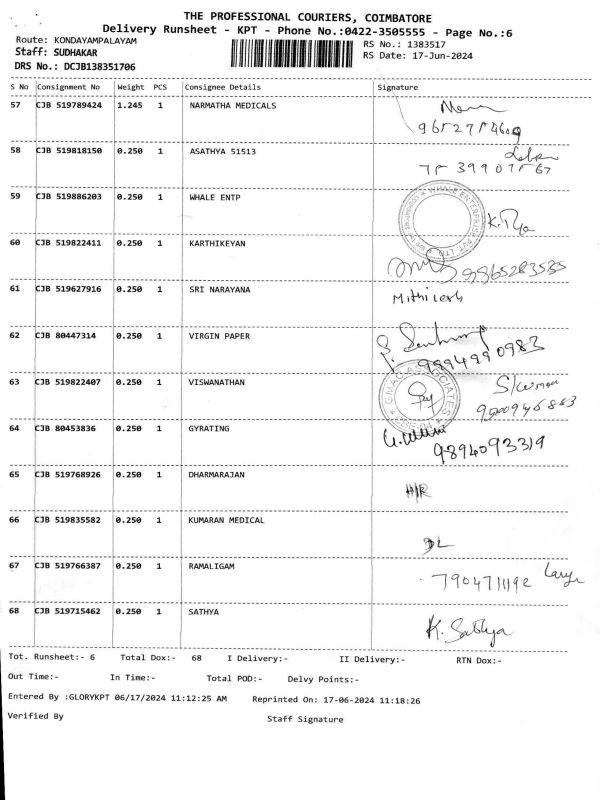 THE PROFESSIONAL COURIERS, COIMBATORE
Delivery Runsheet - KPT - Phone No.:0422-3505555 - Page No.:6
Route: KONDAYAMPALAYAM
RS No.: 1383517
Staff: SUDHAKAR
RS Date: 17-Jun-2024
DRS No.: DCJB138351706
S No Consignment No Weight PCS Consignee Details Signature
57 CJB 519789424 1.245 1 NARMATHA MEDICALS
58 CJB 519818150 0.250 1 ASATHYA 51513
59 CJB 519886203 0.250 1 WHALE ENTP WHALE ENTERPRISE PVT. LTD.
60 CJB 519822411 0.250 1 KARTHIKEYAN 9865283535
61 CJB 519627916 0.250 1 SRI NARAYANA Mithilesh
62 CJB 80447314 0.250 1 VIRGIN PAPER 9994990983
63 CJB 519822407 0.250 1 VISWANATHAN
64 CJB 80453836 0.250 1 GYRATING 9894093319
65 CJB 519768926 0.250 1 DHARMARAJAN
66 CJB 519835582 0.250 1 KUMARAN MEDICAL DL
67 CJB 519766387 0.250 1 RAMALIGAM
68 CJB 519715462 0.250 1 SATHYA K. Sathya
Tot. Runsheet:- 6 Total Dox:- 68 I Delivery:- II Delivery:- RTN Dox:-
Out Time:- In Time:- Total POD:- Delvy Points:-
Entered By :GLORYKPT 06/17/2024 11:12:25 AM Reprinted On: 17-06-2024 11:18:26
Verified By Staff Signature